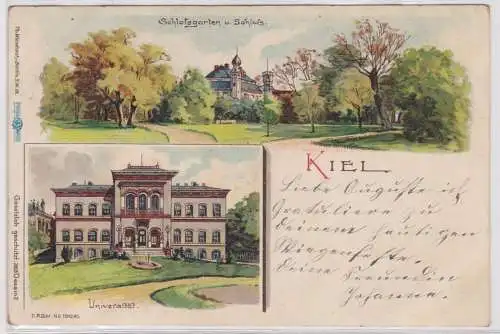 Schloßgarten u. Schloß.
KIEL
Liebe Auguste ich
Gratuliere zu
deinem heutigen
Wiegenfeste.
Deine Freundin
Johanna.
Universität.
Gesetzlich geschützt